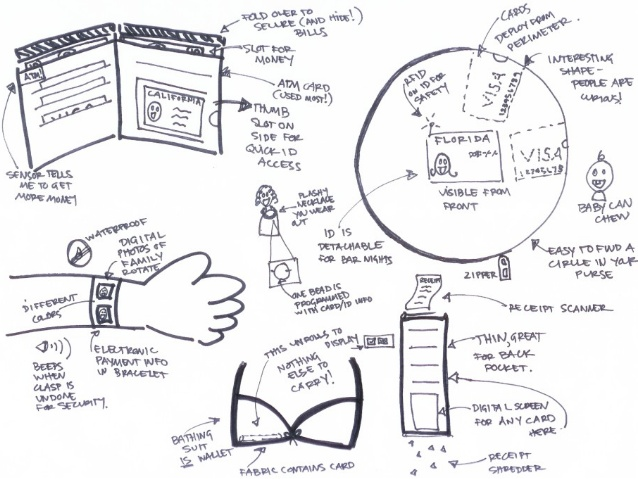 FOLD OVER TO
SECURE (AND HIDE!)
BILLS
SLOT FOR
MONEY
ATM CARD
(USED MOST!)
THUMB
SLOT ON
SIDE FOR
QUICK ID
ACCESS
ATM
VISA
CALIFORNIA
SENSOR TELLS
ME TO GET
MORE MONEY
CARDS
DEPLOY FROM
PERIMETER.
INTERESTING
SHAPE -
PEOPLE ARE
CURIOUS!
RFID
ON ID FOR
SAFETY
VISA
FLORIDA
VISA
12345678
VISIBLE FROM
FRONT
ID IS
DETACHABLE
FOR BAR NIGHTS
BABY CAN
CHEW
EASY TO FIND A
CIRCLE IN YOUR
PURSE
ZIPPER
FLASHY
NECKLACE
YOU WEAR
OUT
ONE BEAD IS
PROGRAMMED
WITH CARD/ID INFO
WATERPROOF
DIGITAL
PHOTOS OF
FAMILY
ROTATE
DIFFERENT
COLORS
BEEPS
WHEN
CLASP IS
UNDONE
FOR SECURITY.
ELECTRONIC
PAYMENT INFO
IN BRACELET
THIS UNROLLS TO
DISPLAY
NOTHING
ELSE TO
CARRY!
BATHING
SUIT
IS WALLET
FABRIC CONTAINS CARD
RECEIPT
RECEIPT SCANNER
THIN, GREAT
FOR BACK
POCKET.
DIGITAL SCREEN
FOR ANY CARD
HERE.
RECEIPT
SHREDDER